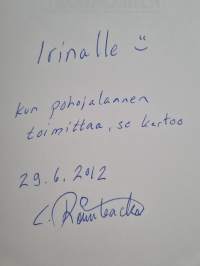 Irinalle :)
kun pohojalaanen
toimittaa, se kertoo
29.6.2012